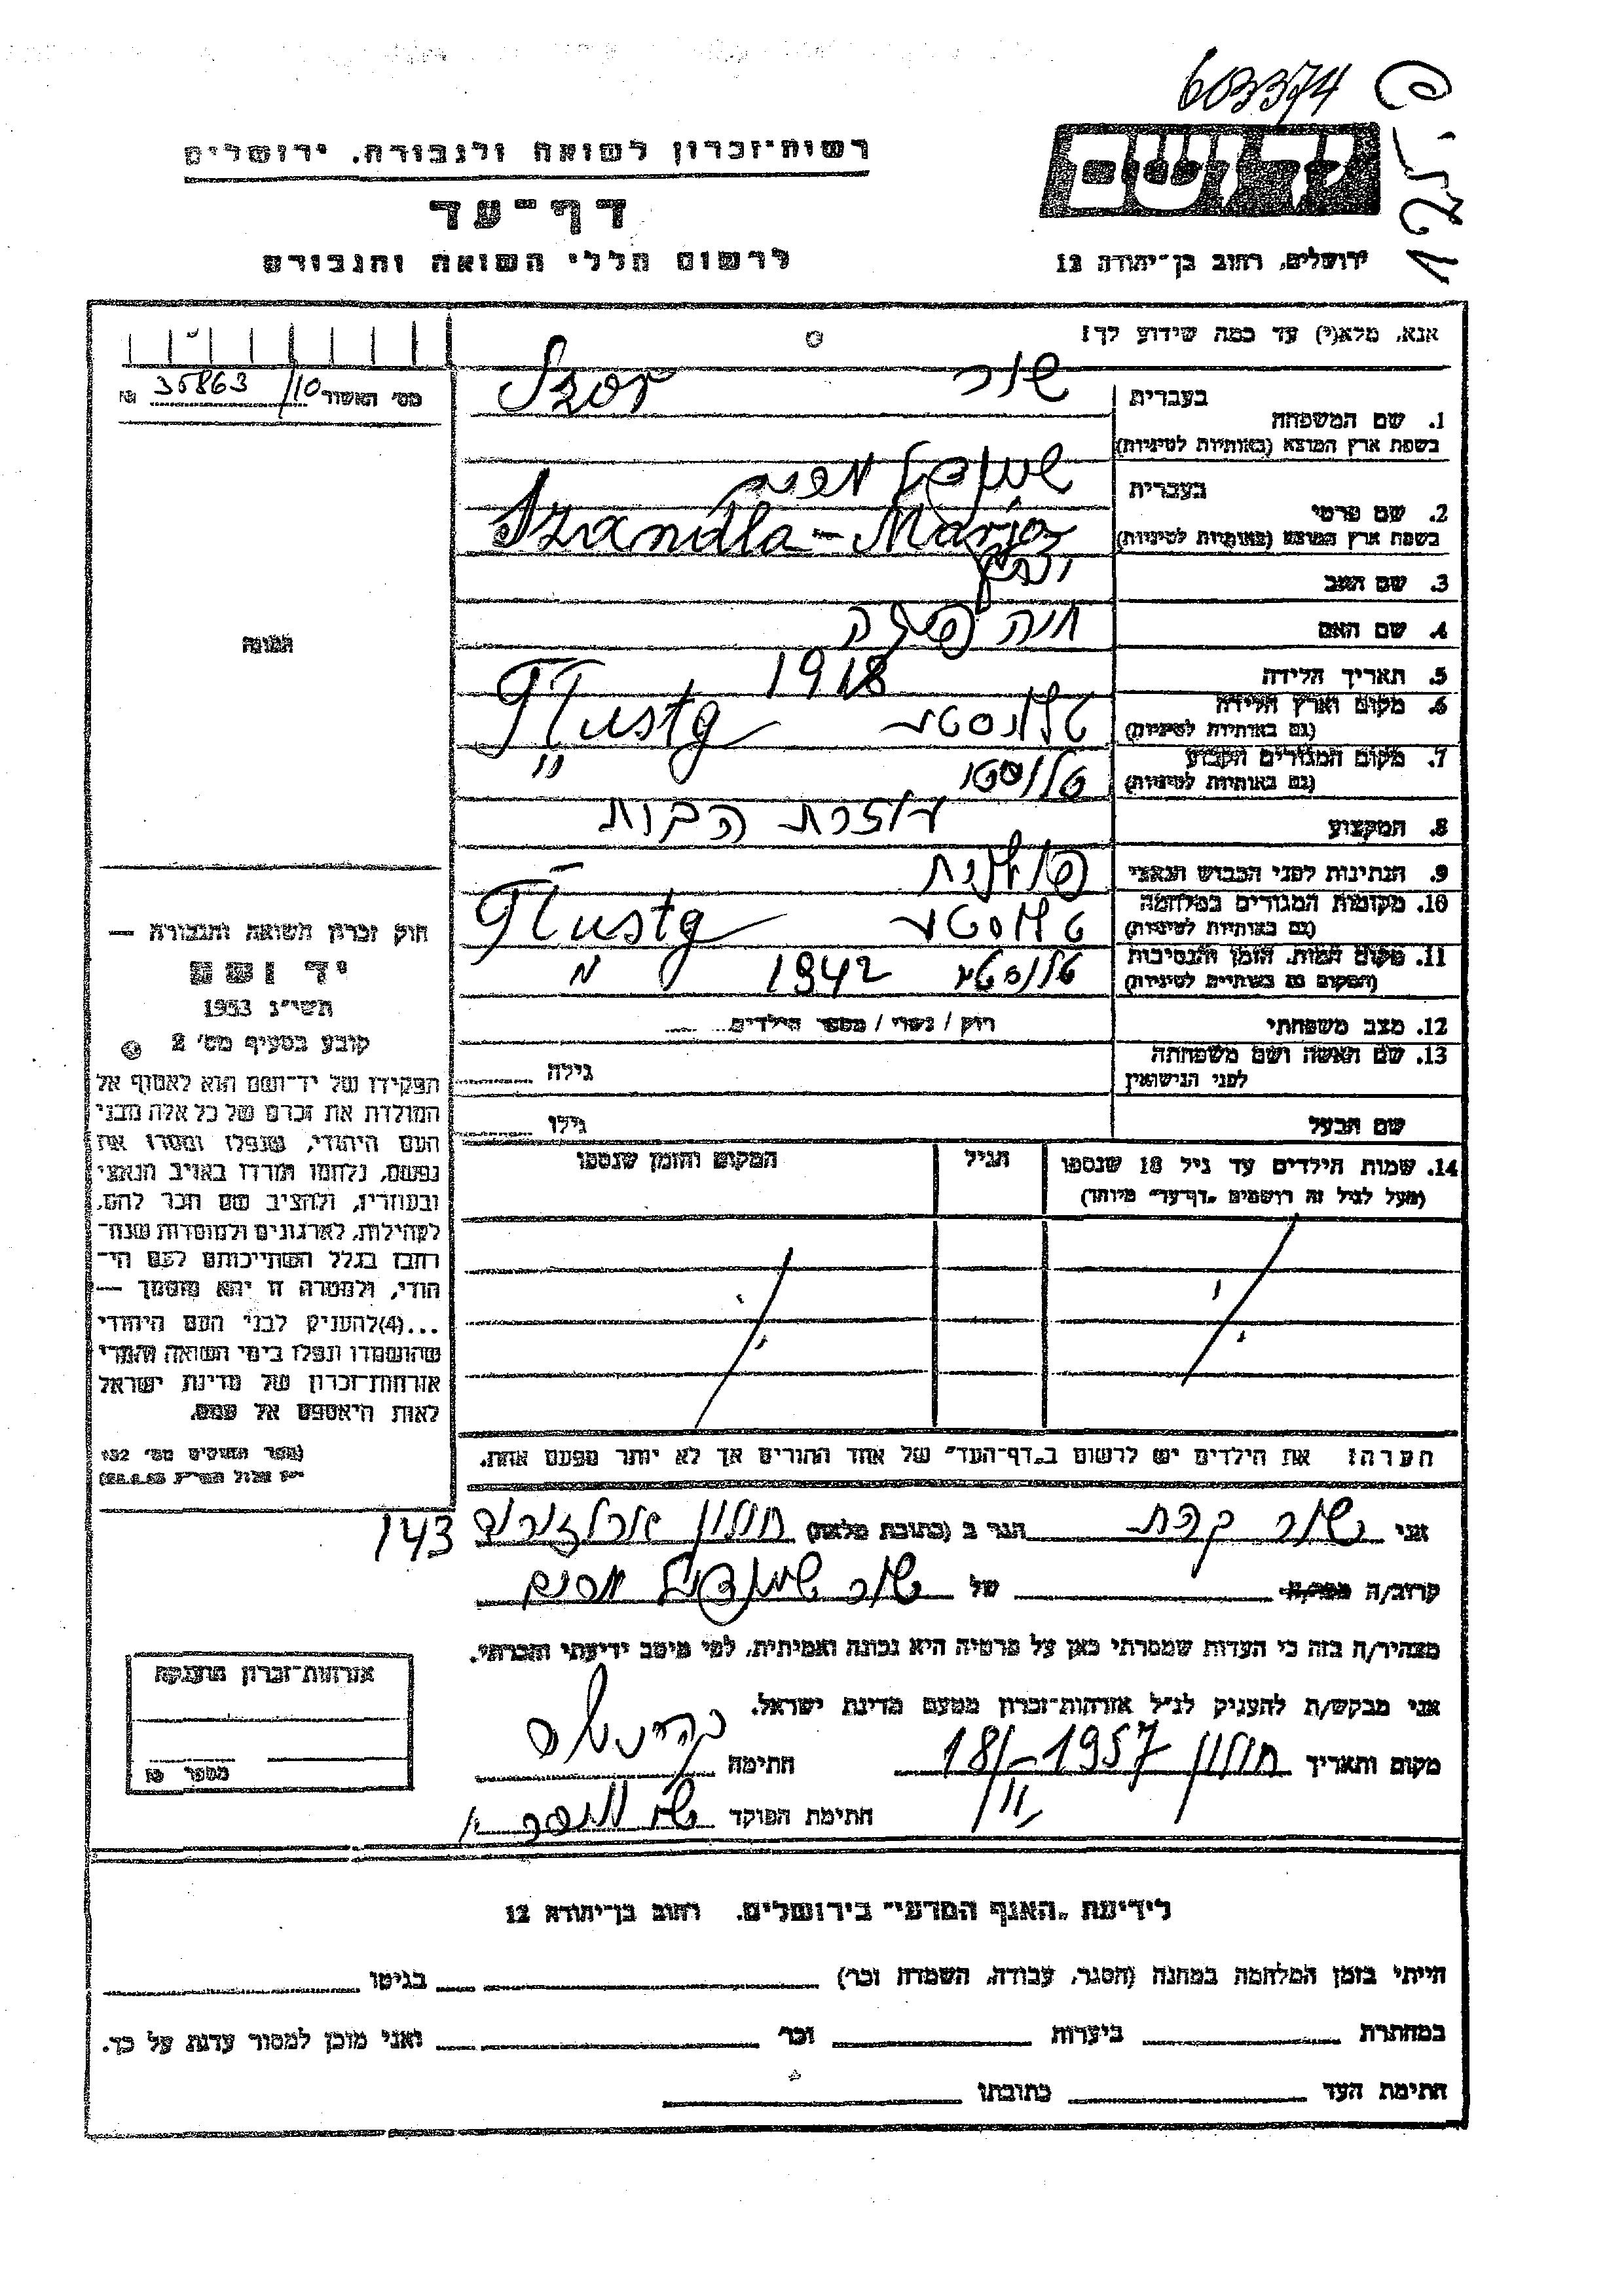 603374
רשות-זכרון לשואה ולגבורה, ירושלים
דף-עד
לרשום חללי השואה והגבורה
ירושלים, רחוב בן-יהודה 12
אנא, מלא(י) עד כמה שידוע לך!
מס' האשור 35863/10 №
1. שם המשפחה
בעברית שור Szor
בשפת ארץ המוצא (באותיות לטיניות)
2. שם פרטי
בעברית שיינדל מרים
בשפת ארץ המוצא (באותיות לטיניות) Szandla-Marja
3. שם האב
4. שם האם חיה
5. תאריך הלידה 1918
6. מקום וארץ הלידה (גם באותיות לטיניות) טלוסטא Tłusty
7. מקום המגורים הקבוע (גם באותיות לטיניות) טלוסטא "
8. המקצוע עוזרת הבית
9. הנתינות לפני הכבוש הנאצי פולנית
10. מקומות המגורים במלחמה (גם באותיות לטיניות) טלוסטא Tłusty
11. מקום המות, הזמן והנסיבות (המקום גם באותיות לטיניות) טלוסטא 1942 "
12. מצב משפחתי רווק / נשוי / מספר הילדים
13. שם האשה ושם משפחתה לפני הנישואין גילה
שם הבעל גילו
14. שמות הילדים עד גיל 18 שנספו
(מעל לגיל זה רושמים "דף-עד" מיוחד)
הגיל
המקום והזמן שנספו
הערה: את הילדים יש לרשום ב"דף-העד" של אחד ההורים אך לא יותר מפעם אחת.
תמונה
חוק זכרון השואה והגבורה —
יד ושם
תשי"ג 1953
קובע בסעיף מס' 2
תפקידו של יד-ושם הוא לאסוף אל
המולדת את זכרם של כל אלה מבני
העם היהודי, שנפלו ומסרו את
נפשם, נלחמו ומרדו באויב הנאצי
ובעוזריו, ולהציב שם וזכר להם,
לקהילות, לארגונים ולמוסדות שנח-
רבו בגלל השתייכותם לעם הי-
הודי, ולמטרה זו יהא מוסמך —
...(4) להעניק לבני העם היהודי
שהושמדו ונפלו בימי השואה והמרי
אזרחות-זכרון של מדינת ישראל
לאות היאספם אל עמם.
(ספר החוקים מס' 132
אני שור הגר ב (כתובת מלאה) חולון ארלוזורוב 143
קרוב/ה של שור שיינדל מרים
מצהיר/ה בזה כי העדות שמסרתי כאן על פרטיה היא נכונה ואמיתית, לפי מיטב ידיעתי והכרתי.
אני מבקש/ת להעניק לנ"ל אזרחות-זכרון מטעם מדינת ישראל.
מקום ותאריך חולון 18/II-1957 חתימה
חתימת הפוקד
אזרחות-זכרון מוענקת
מספר
לידיעת "האגף המדעי" בירושלים, רחוב בן-יהודה 12
הייתי בזמן המלחמה במחנה (הסגר, עבודה, השמדה וכו') בגיטו
במחתרת ביערות וכו' ואני מוכן למסור עדות על כך.
חתימת העד כתובתו